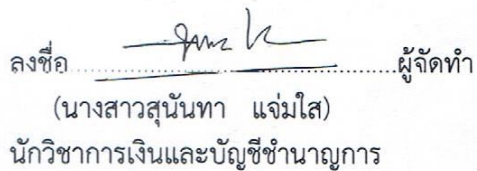 ลงชื่อ....................................ผู้จัดทำ
(นางสาวสุนันทา แจ่มใส)
นักวิชาการเงินและบัญชีชำนาญการ